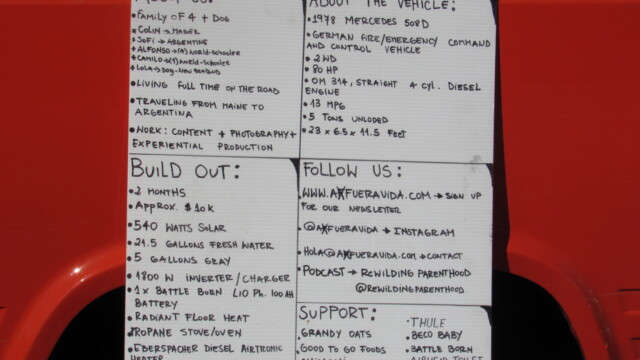 ABOUT US:
• FAMILY OF 4 + DOG
• COLIN → MAINER
• SOFI → ARGENTINE
• ALFONSO → (4) WORLD-SCHOOLER
• CAMILO → (1) WORLD-SCHOOLER
• LOLA → DOG-NEW
• LIVING FULL TIME ON THE ROAD
• TRAVELING FROM MAINE TO
ARGENTINA
• WORK: CONTENT + PHOTOGRAPHY +
EXPERIENTIAL PRODUCTION
ABOUT THE VEHICLE:
• 1978 MERCEDES 508D
• GERMAN FIRE/EMERGENCY COMMAND
AND CONTROL VEHICLE
• 2WD
• 80 HP
• OM 314, STRAIGHT 4 CYL. DIESEL
ENGINE
• 13 MPG
• 5 TONS UNLODED
• 23 x 6.5 x 11.5 FEET
BUILD OUT:
• 2 MONTHS
• APPROX. $10K
• 540 WATTS SOLAR
• 21.5 GALLONS FRESH WATER
• 5 GALLONS GRAY
• 1800 W INVERTER/CHARGER
• 1x BATTLE BORN LIO Ph. 100 AH
BATTERY
• RADIANT FLOOR HEAT
• PROPANE STOVE/OVEN
• EBERSPACHER DIESEL AIRTRONIC
HEATER
FOLLOW US:
• WWW.AXFUERAVIDA.COM → SIGN UP
FOR OUR NEWSLETTER
• @AXFUERAVIDA → INSTAGRAM
• HOLA@AXFUERAVIDA.COM → CONTACT
• PODCAST → REWILDING PARENTHOOD
@REWILDINGPARENTHOOD
SUPPORT:
• GRANDY OATS
• GOOD TO GO FOODS
• THULE
• BECO BABY
• BATTLE BORN
• AIRHEAD TOILET